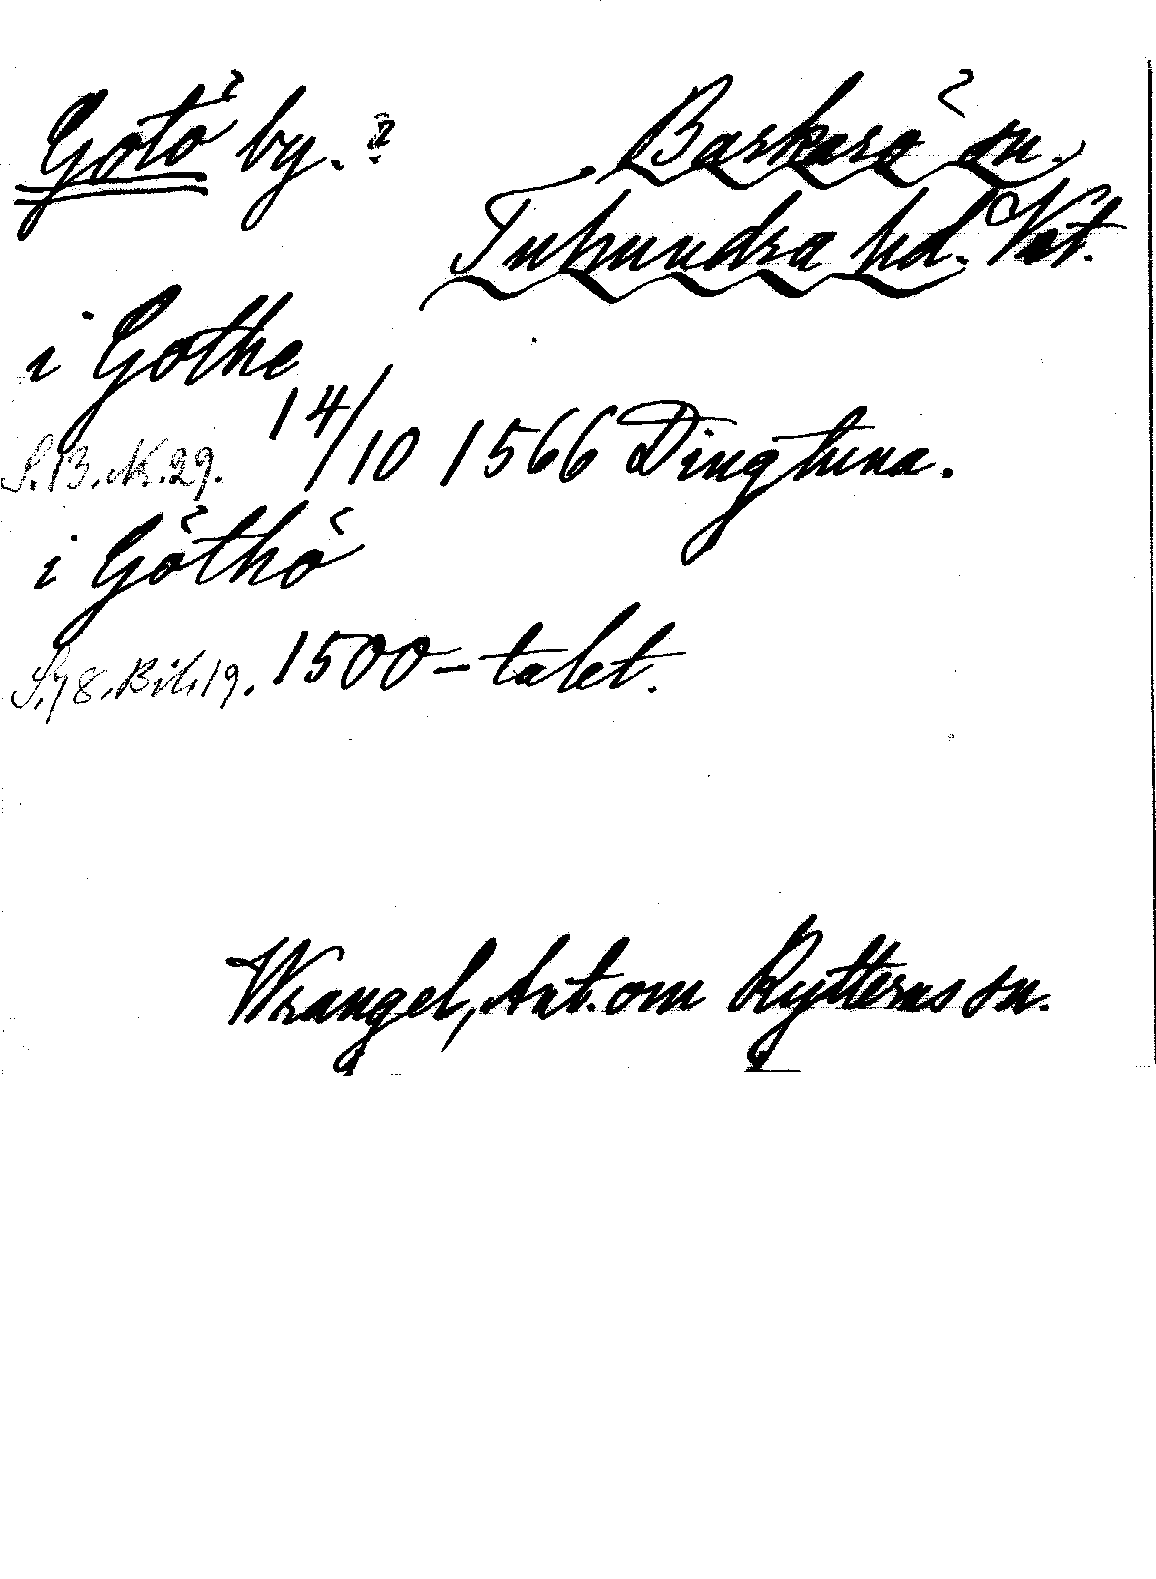 Götö by.? Barkarö sn.
Tuhundra hd. Vst.
i Gothe
14/10 1566 Dingtuna.
S. B. N. 29.
i Göthö
S. 78. Bil. 19. 1500-talet.
Wrangel, Ant. om Rytterns sn.